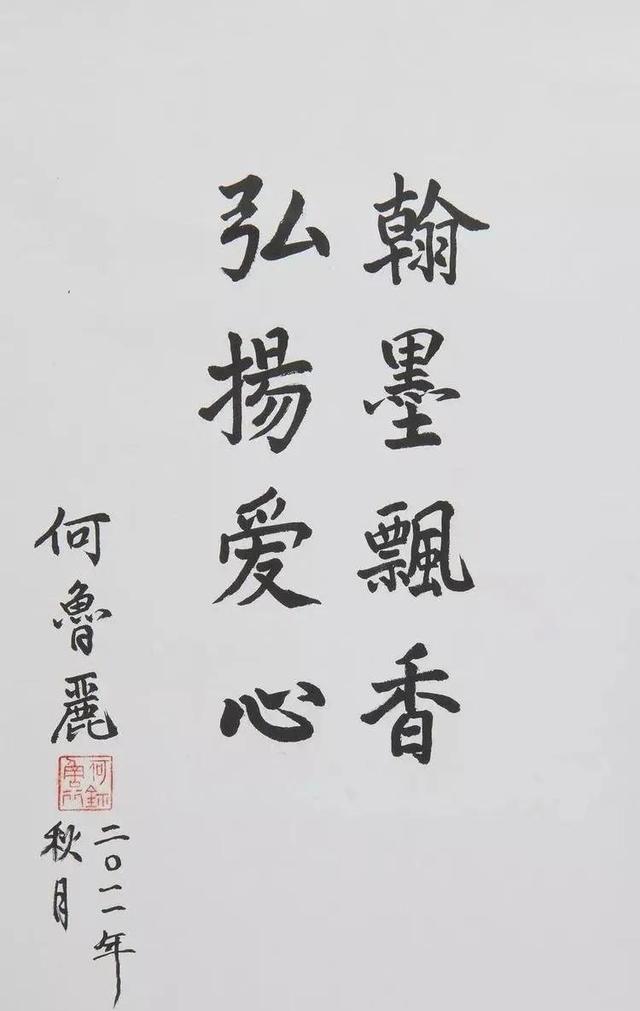 翰墨飄香
弘揚爱心
何魯麗
二〇一一年
秋月